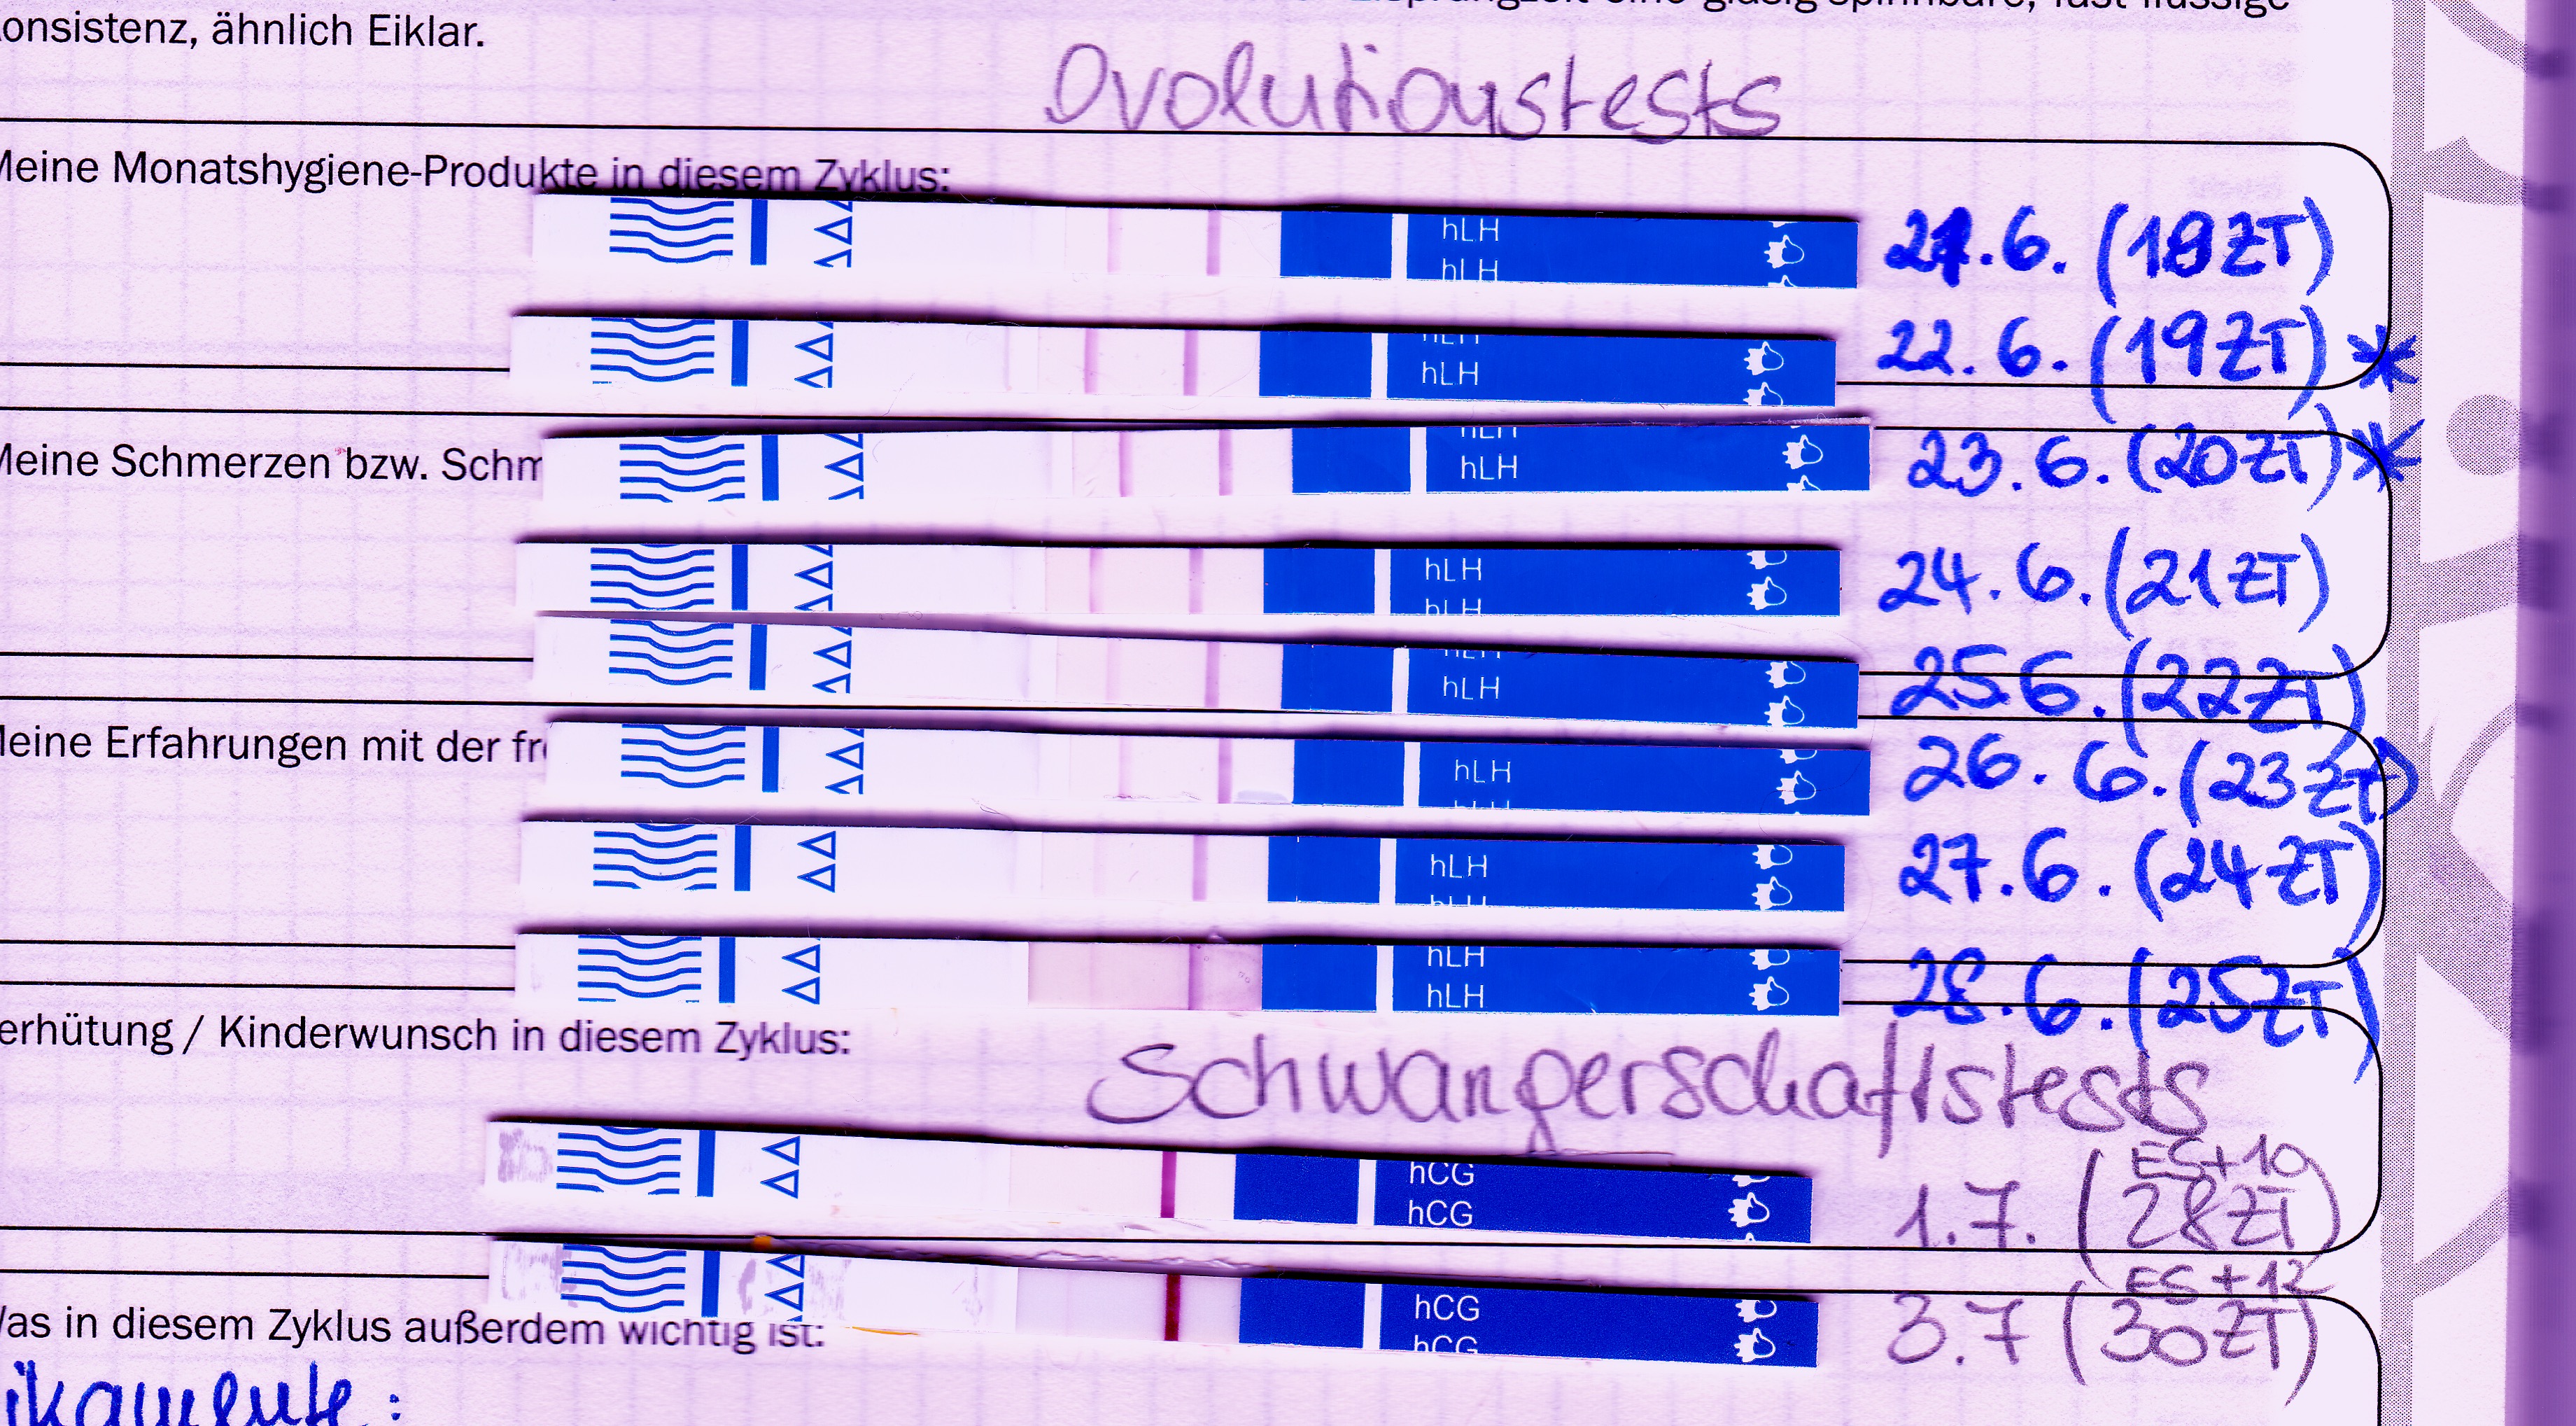 onsistenz, ähnlich Eiklar.
Ovolutionstests
Meine Monatshygiene-Produkte in diesem Zyklus:
hLH
hLH
21.6. (18ZT)
hLH
hLH
22.6. (19ZT) *
hLH
hLH
23.6. (20ZT) *
Meine Schmerzen bzw. Schm
hLH
hLH
24.6. (21ZT)
hLH
hLH
25.6. (22ZT)
Meine Erfahrungen mit der fr
hLH
hLH
26.6. (23ZT)
hLH
hLH
27.6. (24ZT)
hLH
hLH
28.6. (25ZT)
erhütung / Kinderwunsch in diesem Zyklus:
Schwangerschaftstests
hCG
hCG
ES+10
1.7. (28ZT)
hCG
hCG
ES+12
3.7 (30ZT)
Was in diesem Zyklus außerdem wichtig ist:
ikamente: